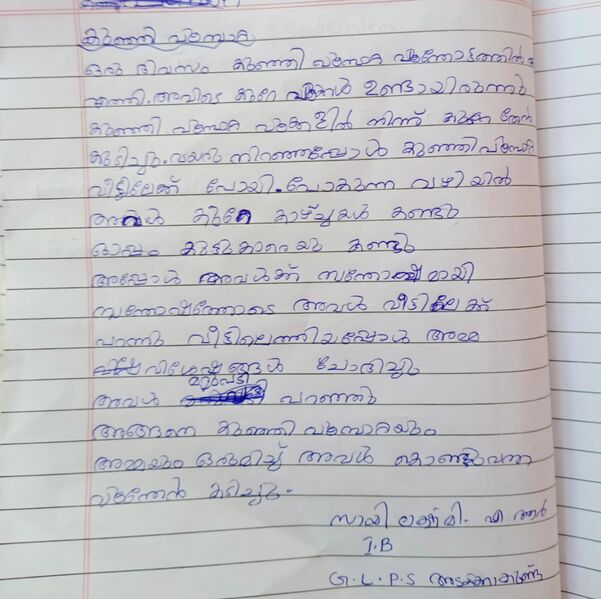 കുഞ്ഞി പൂമ്പാറ്റ
ഒരു ദിവസം കുഞ്ഞി പൂമ്പാറ്റ പൂന്തോട്ടത്തിൽ
എത്തി. അവിടെ കുറേ പൂക്കൾ ഉണ്ടായിരുന്നു
കുഞ്ഞി പൂമ്പാറ്റ പൂക്കളിൽ നിന്ന് കുറേ തേൻ
കുടിച്ചു. വയറു നിറഞ്ഞപ്പോൾ കുഞ്ഞി പൂമ്പാറ്റ
വീട്ടിലേക്ക് പോയി. പോകുന്ന വഴിയിൽ
അവൾ കുറേ കാഴ്ച്ചകൾ കണ്ടു
ഒപ്പം കൂട്ടുകാരെയും കണ്ടു
അപ്പോൾ അവൾക്ക് സന്തോഷമായി
സന്തോഷത്തോടെ അവൾ വീട്ടിലേക്ക്
പറന്നു വീട്ടിലെത്തിയപ്പോൾ അമ്മ
വിശേഷങ്ങൾ ചോദിച്ചു
അവൾ മറുപടി പറഞ്ഞു
അങ്ങനെ കുഞ്ഞി പൂമ്പാറ്റയും
അമ്മയും ഒരുമിച്ച് അവൾ കൊണ്ടുവന്ന
പൂന്തേൻ കുടിച്ചു.
സായി ലക്ഷ്മി. എ.ആർ
I.B
G.L.P.S അടക്കാകുണ്ട്